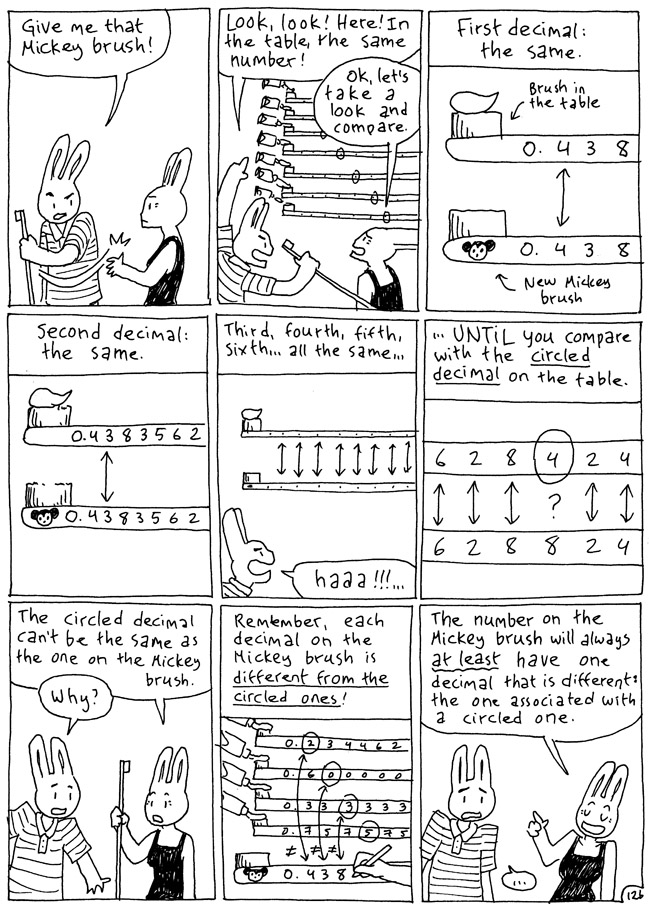 Give me that
Mickey brush!
Look, look! Here! In
the table, the same
number!
Ok, let's
take a
look and
compare.
First decimal:
the same.
Brush in
the table
0. 4 3 8
0. 4 3 8
New Mickey
brush
Second decimal:
the same.
0.4383562
0.4383562
Third, fourth, fifth,
sixth... all the same...
haaa!!!...
... UNTIL you compare
with the circled
decimal on the table.
6 2 8 4 2 4
?
6 2 8 8 2 4
The circled decimal
can't be the same as
the one on the Mickey
brush.
Why?
Remember, each
decimal on the
Mickey brush is
different from the
circled ones!
0. 2 3 4 4 6 2
0. 6 0 0 0 0 0
0. 3 3 3 3 3 3
0. 7 5 7 5 7 5
≠ ≠ ≠
0. 4 3 8
The number on the
Mickey brush will always
at least have one
decimal that is different:
the one associated with
a circled one.
...
126